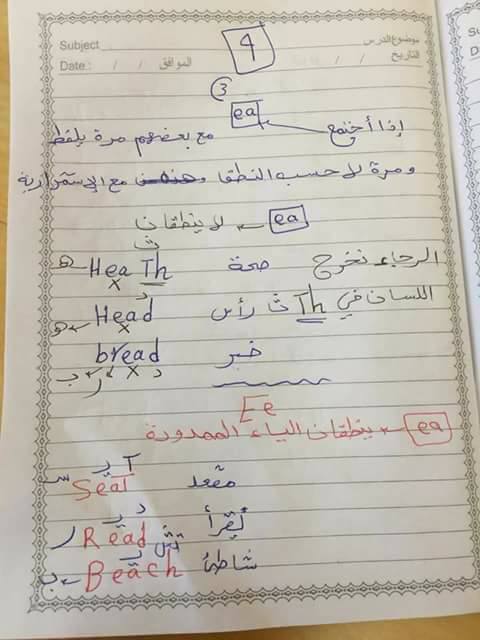 Subject موضوع الدرس
Date : / / الموافق / / التاريخ
4
3
إذا أجتمع ea مع بعضهم مرة يلفظ
ومرة لا حسب النطق مع الإستمرارية
ea لا ينطقان
ث
الرجاء نخرج صحة HeaTh هـ
x
د
اللسان في Th ث رأس Head هـ
x
خبز bread
ب ر x د
Ee
ea ينطقان الياء الممدودة
ت يـ
مقعد Seat سـ
د يـ
يُقرأ Read ر
تش يـ
شاطئ Beach بـ